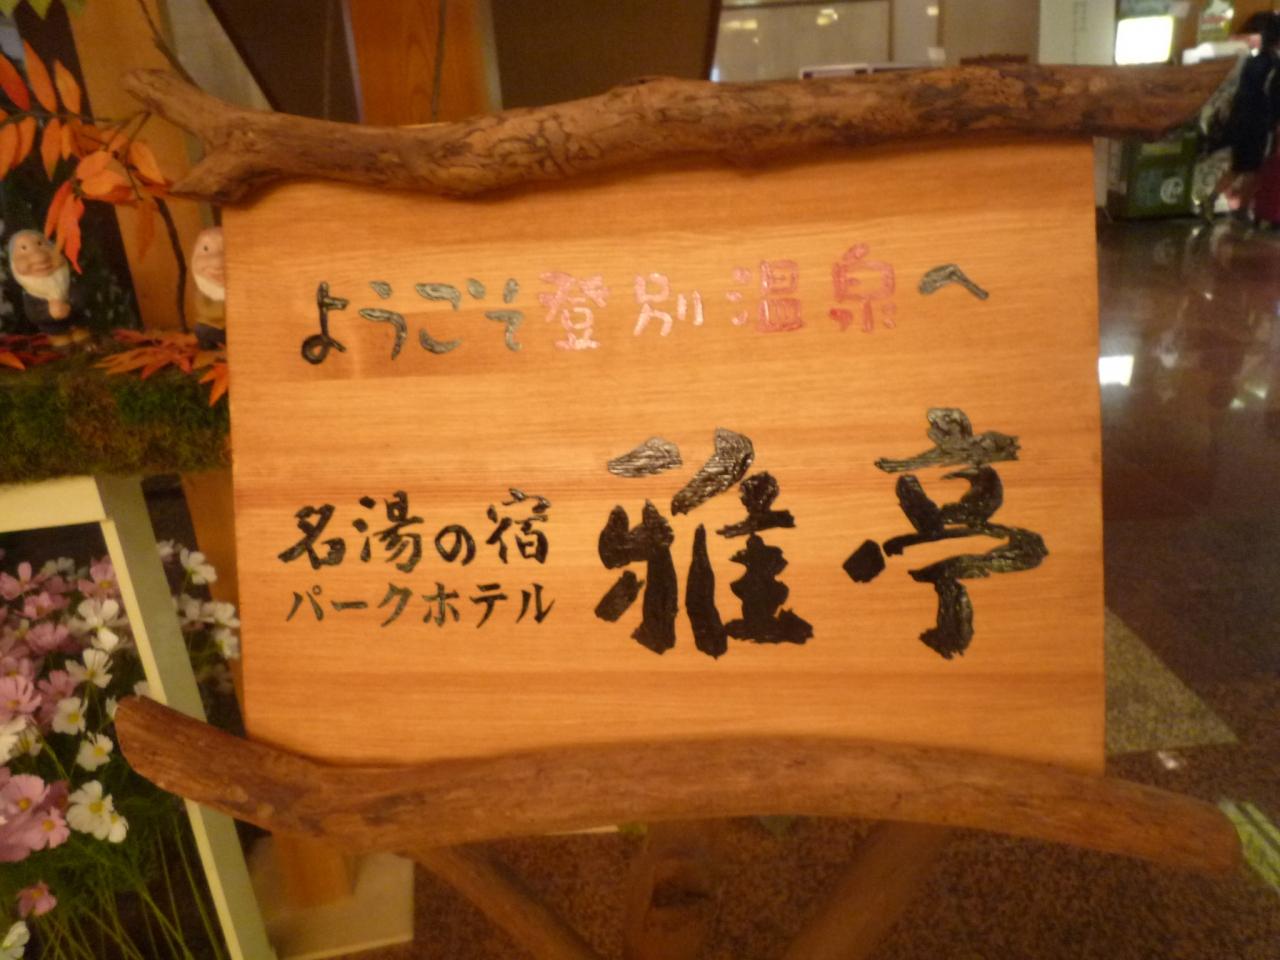 ようこそ登別温泉へ
名湯の宿
パークホテル
雅亭